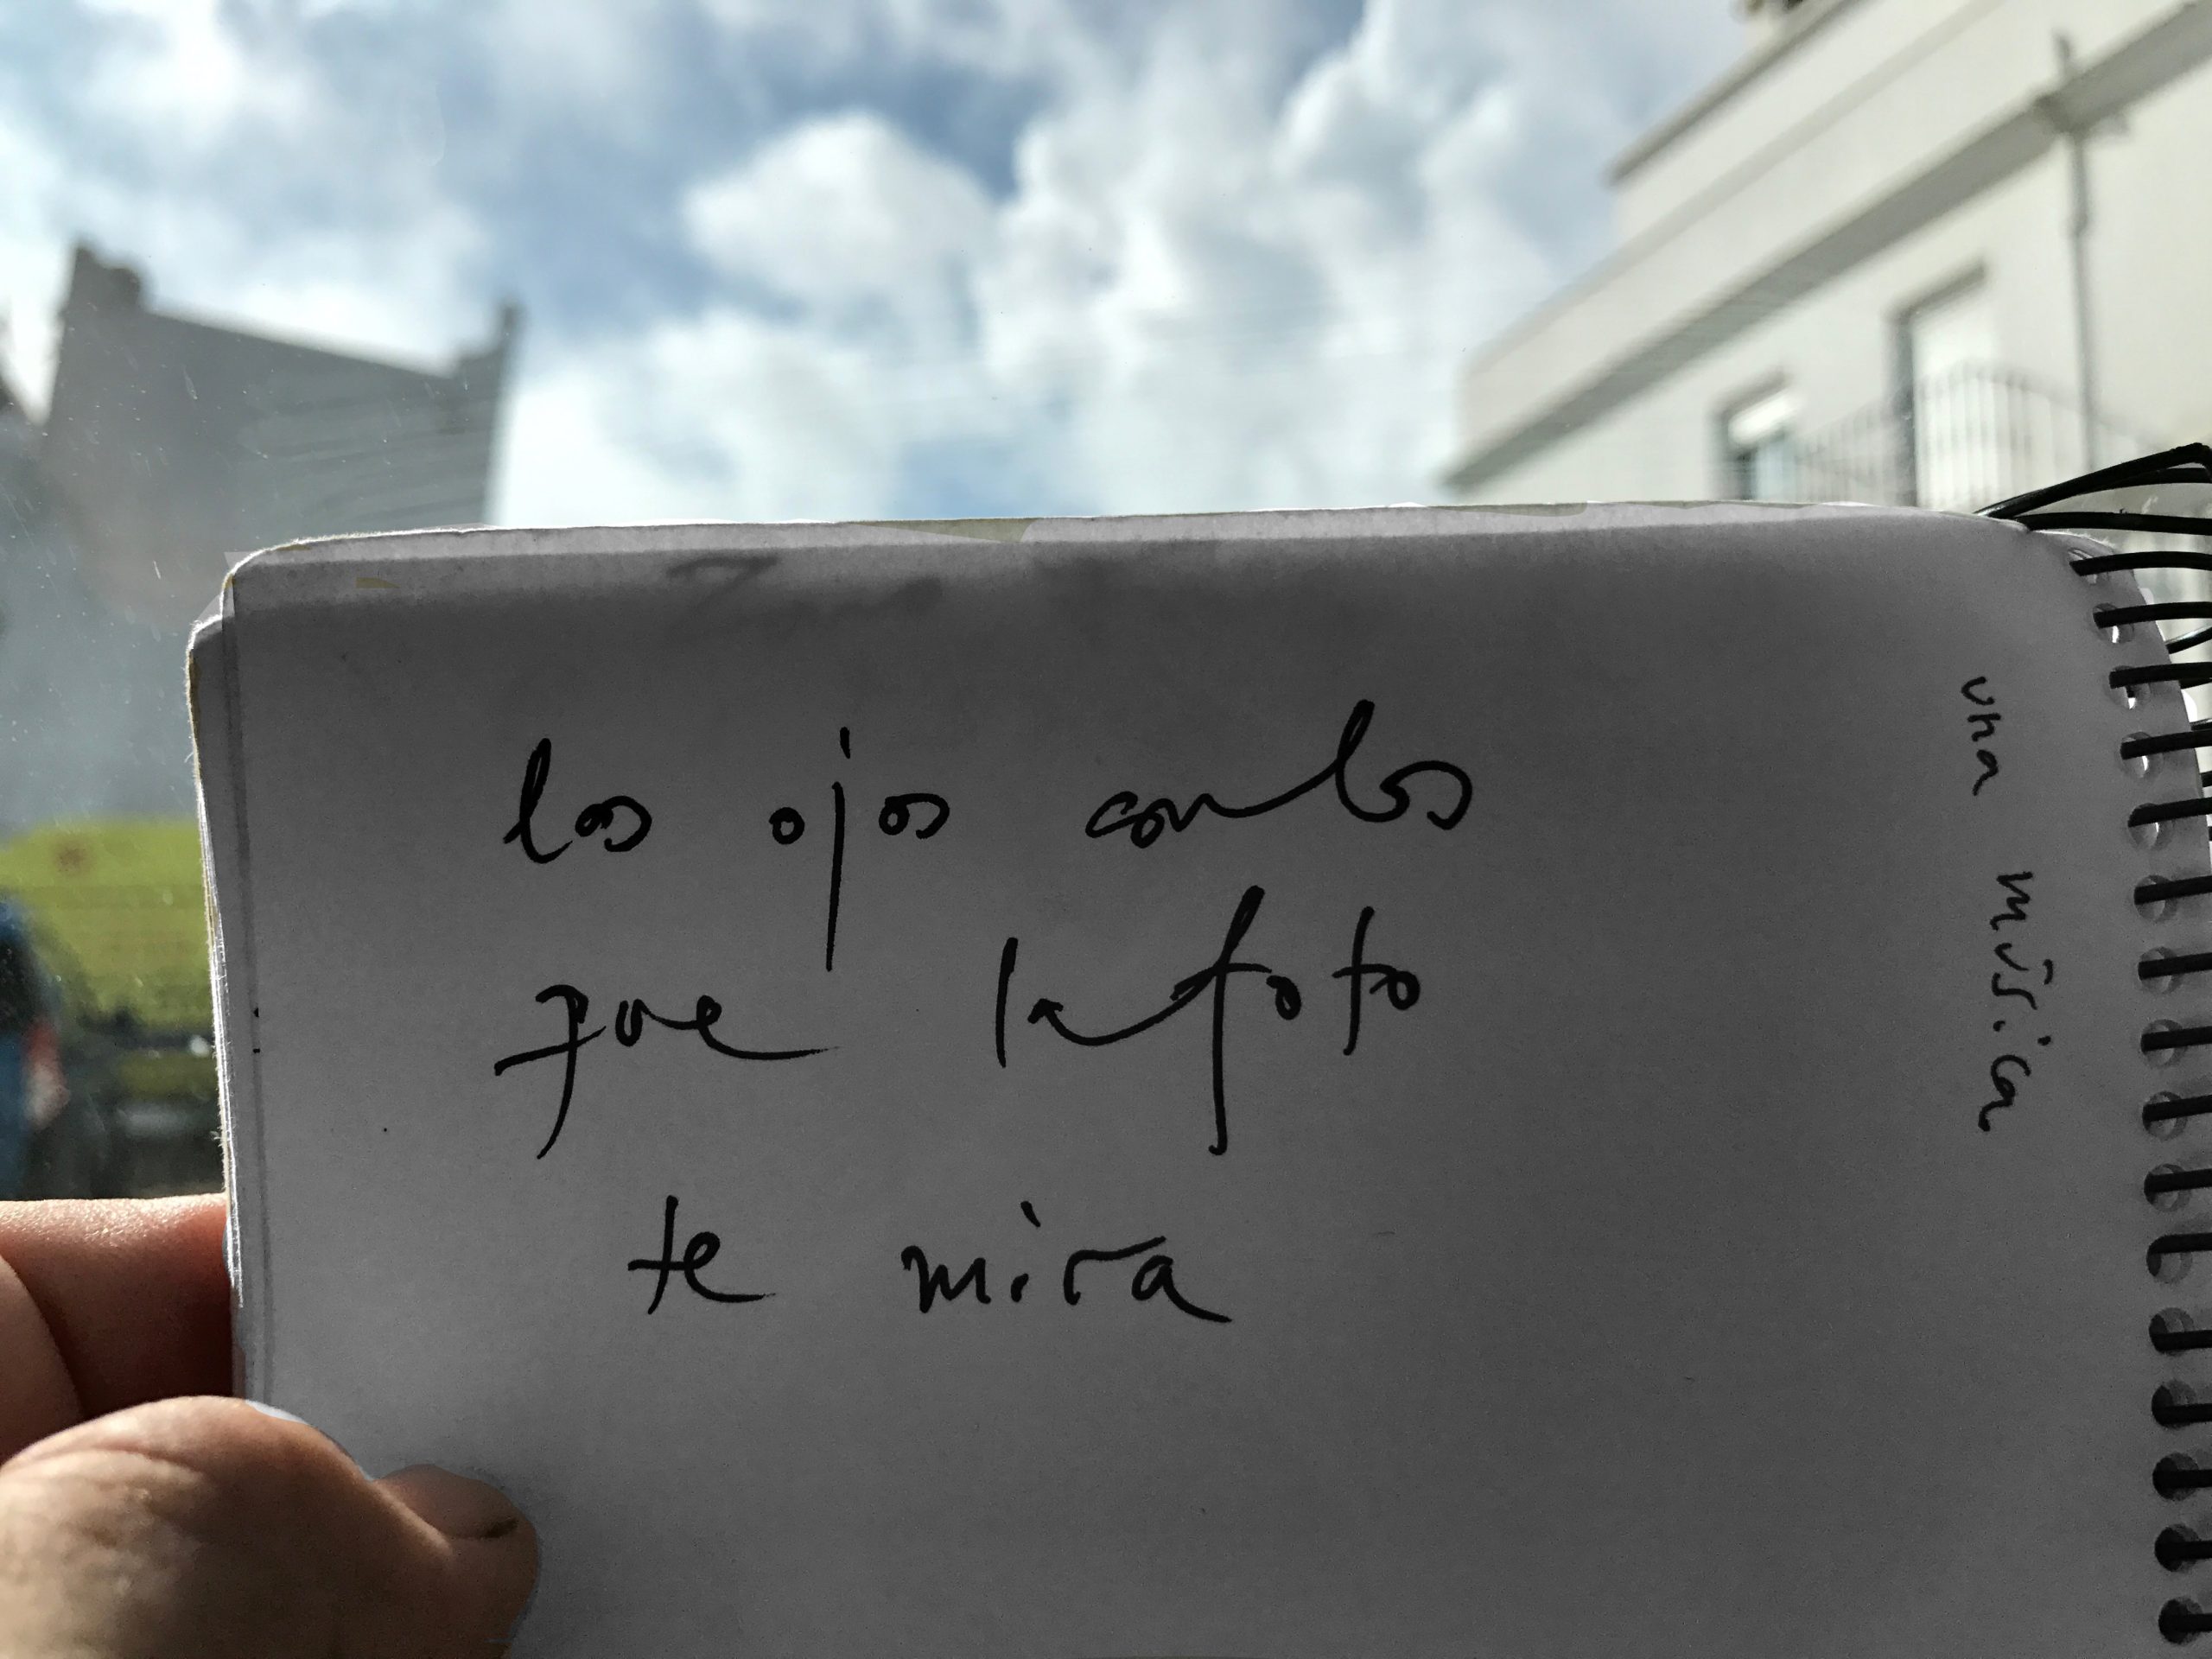 los ojos con los
que la foto
te mira
una música